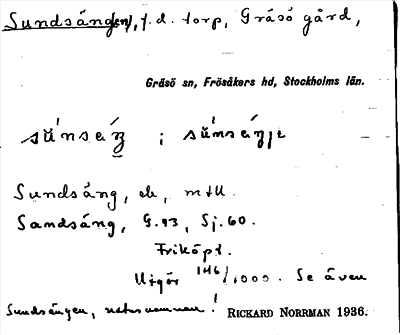 Sundsäng(en), f.d. torp, Gräsö gård,
Gräsö sn, Frösåkers hd, Stockholms län.
Sundsäng, ek, mtu.
Sandsäng, G.93, Sj.60.
Friköpt.
Utgör 146/1000. Se även
Sundsängen, naturnamnen!
RICKARD NORRMAN 1936.